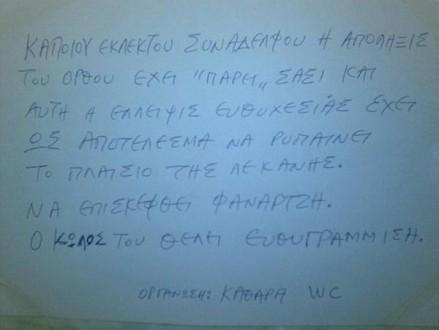 ΚΑΠΟΙΟΥ ΕΚΛΕΚΤΟΥ ΣΥΝΑΔΕΛΦΟΥ Η ΑΠΟΛΗΞΙΣ
ΤΟΥ ΟΡΘΟΥ ΕΧΕΙ "ΠΑΡΕΙ" ΣΑΣΙ ΚΑΙ
ΑΥΤΗ Η ΕΛΛΕΙΨΙΣ ΕΥΘΥΧΕΣΙΑΣ ΕΧΕΙ
ΩΣ ΑΠΟΤΕΛΕΣΜΑ ΝΑ ΡΥΠΑΙΝΕΙ
ΤΟ ΠΛΑΙΣΙΟ ΤΗΣ ΛΕΚΑΝΗΣ.
ΝΑ ΕΠΙΣΚΕΦΘΕΙ ΦΑΝΑΡΤΖΗ.
Ο ΚΩΛΟΣ ΤΟΥ ΘΕΛΕΙ ΕΥΘΥΓΡΑΜΜΙΣΗ.
ΟΡΓΑΝΩΣΗ: ΚΑΘΑΡΑ WC